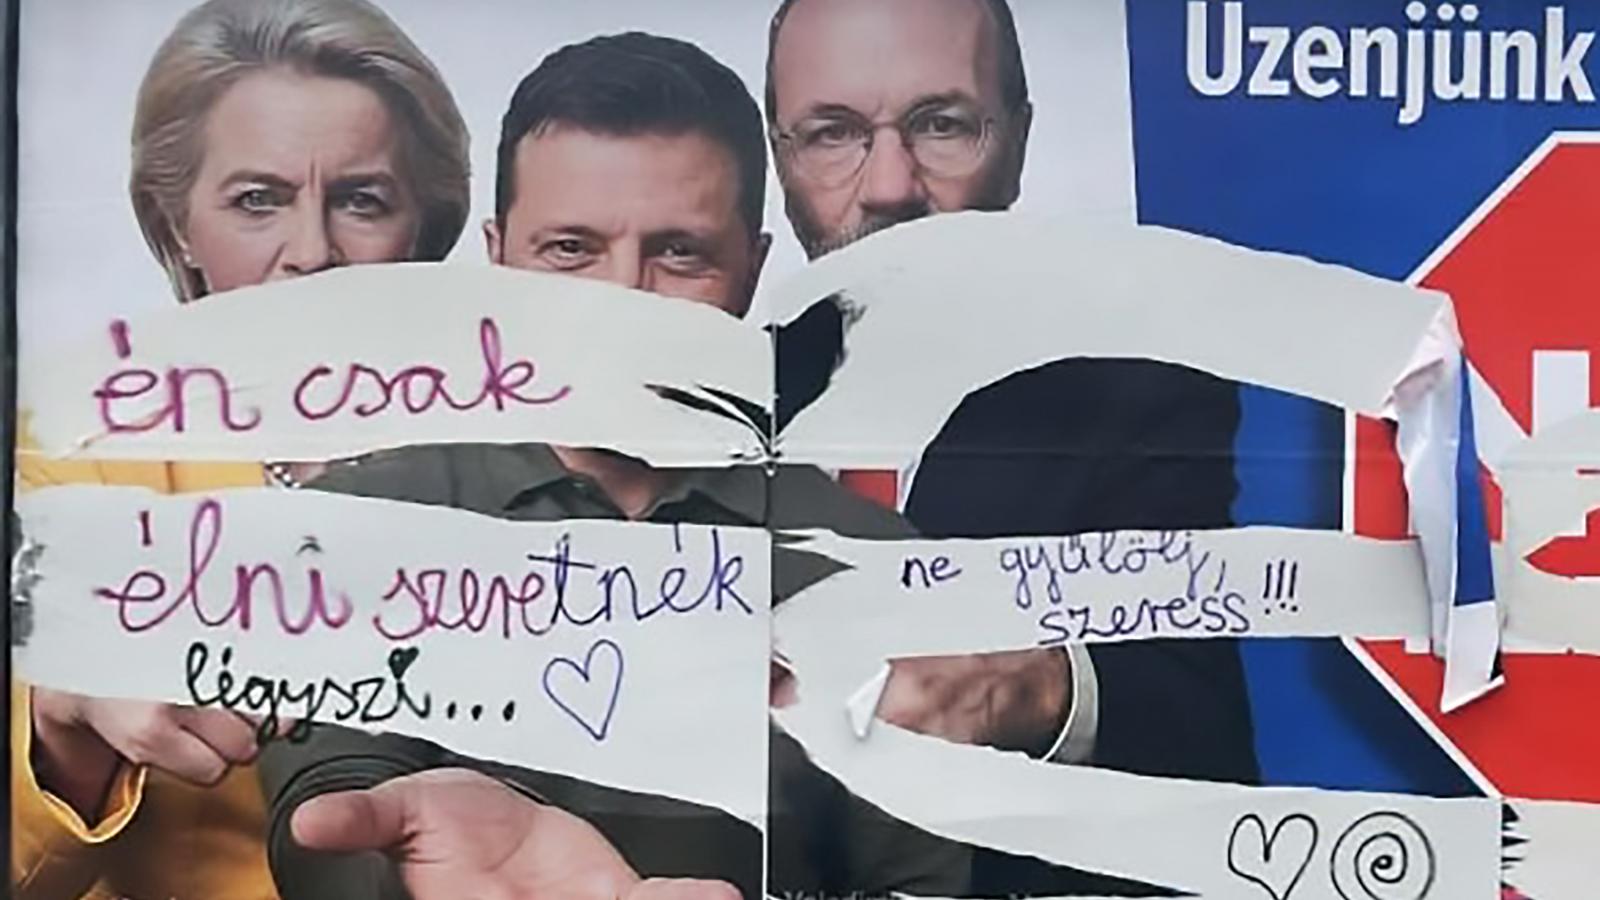 Üzenjünk
én csak
élni szeretnék
légyszi...
ne gyűlölj,
szeress!!!